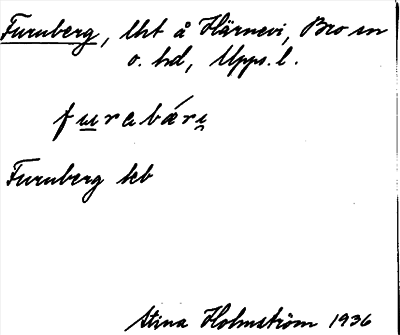 Furuberg, lht å Härnevi, Bro sn
o. hd, Upps. l.
furabári
Furuberg kb
Stina Holmström 1936